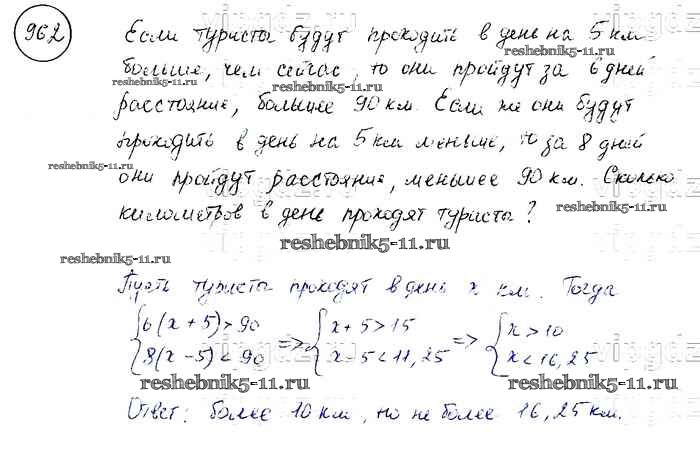 962
Если туристы будут проходить в день на 5 км
больше, чем сейчас, то они пройдут за 6 дней
reshebnik5-11.ru
reshebnik5-11.ru
расстояние, большее 90 км. Если же они будут
проходить в день на 5 км меньше, то за 8 дней
reshebnik5-11.ru
они пройдут расстояние, меньшее 90 км. Сколько
reshebnik5-11.ru
километров в день проходят туристы?
reshebnik5-11.ru
reshebnik5-11.ru
Пусть туристы проходят в день x км. Тогда
{6(x+5)>90 => {x+5>15 => {x>10
8(x-5)<90 x-5<11,25 x<16,25
reshebnik5-11.ru
reshebnik5-11.ru
Ответ: более 10 км, но не более 16,25 км.